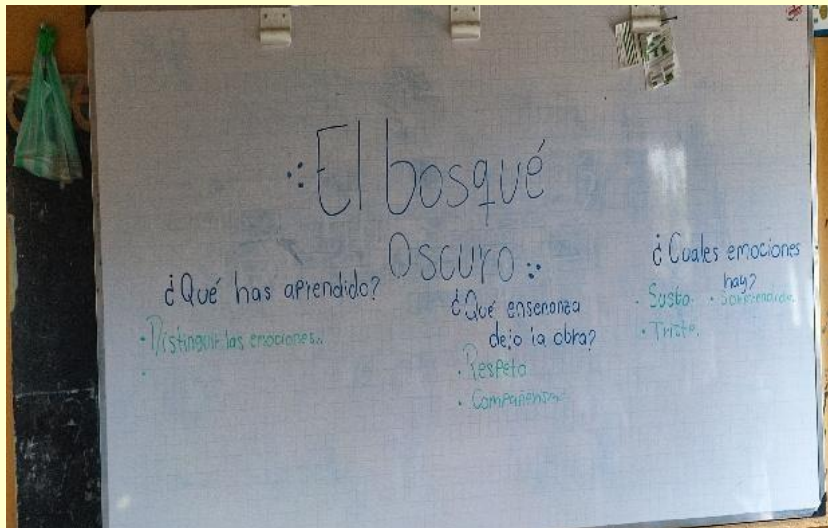 ∴El bosqué
Oscuro∴
¿Qué has aprendido?
· Distinguir las emociones.
¿Qué ensenanza
dejo la obra?
· Respeto
¿Cuales emociones
hay?
· Susto · Sorprendido.
· Triste.